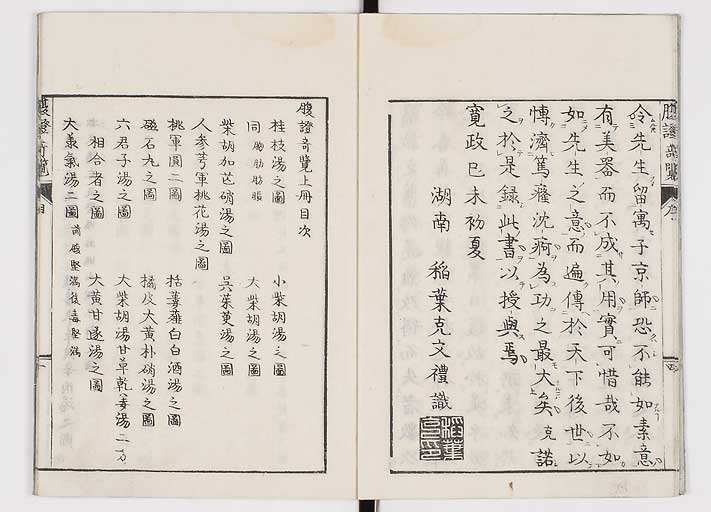 令先生留寓于京師恐不能如素意
有美器而不成其用實可惜哉不如
如先生之意而遍傳於天下後世以
博濟篤癃沈痾為功之最大矣克諾
之於是録此書以授與焉
寛政己未初夏
湖南 稲葉克文禮識
腹證奇覽上冊目次
桂枝湯之圖 小柴胡湯之圖
同 大柴胡湯之圖
柴胡加芒硝湯之圖 呉茱萸湯之圖
人参芎軍桃花湯之圖
桃軍圓二圖 栝蔞薤白白酒湯之圖
磁石丸之圖 橘皮大黄朴硝湯之圖
六君子湯之圖 大柴胡湯甘草乾姜湯二方
相合者之圖 大黄甘遂湯之圖
大承氣湯二圖